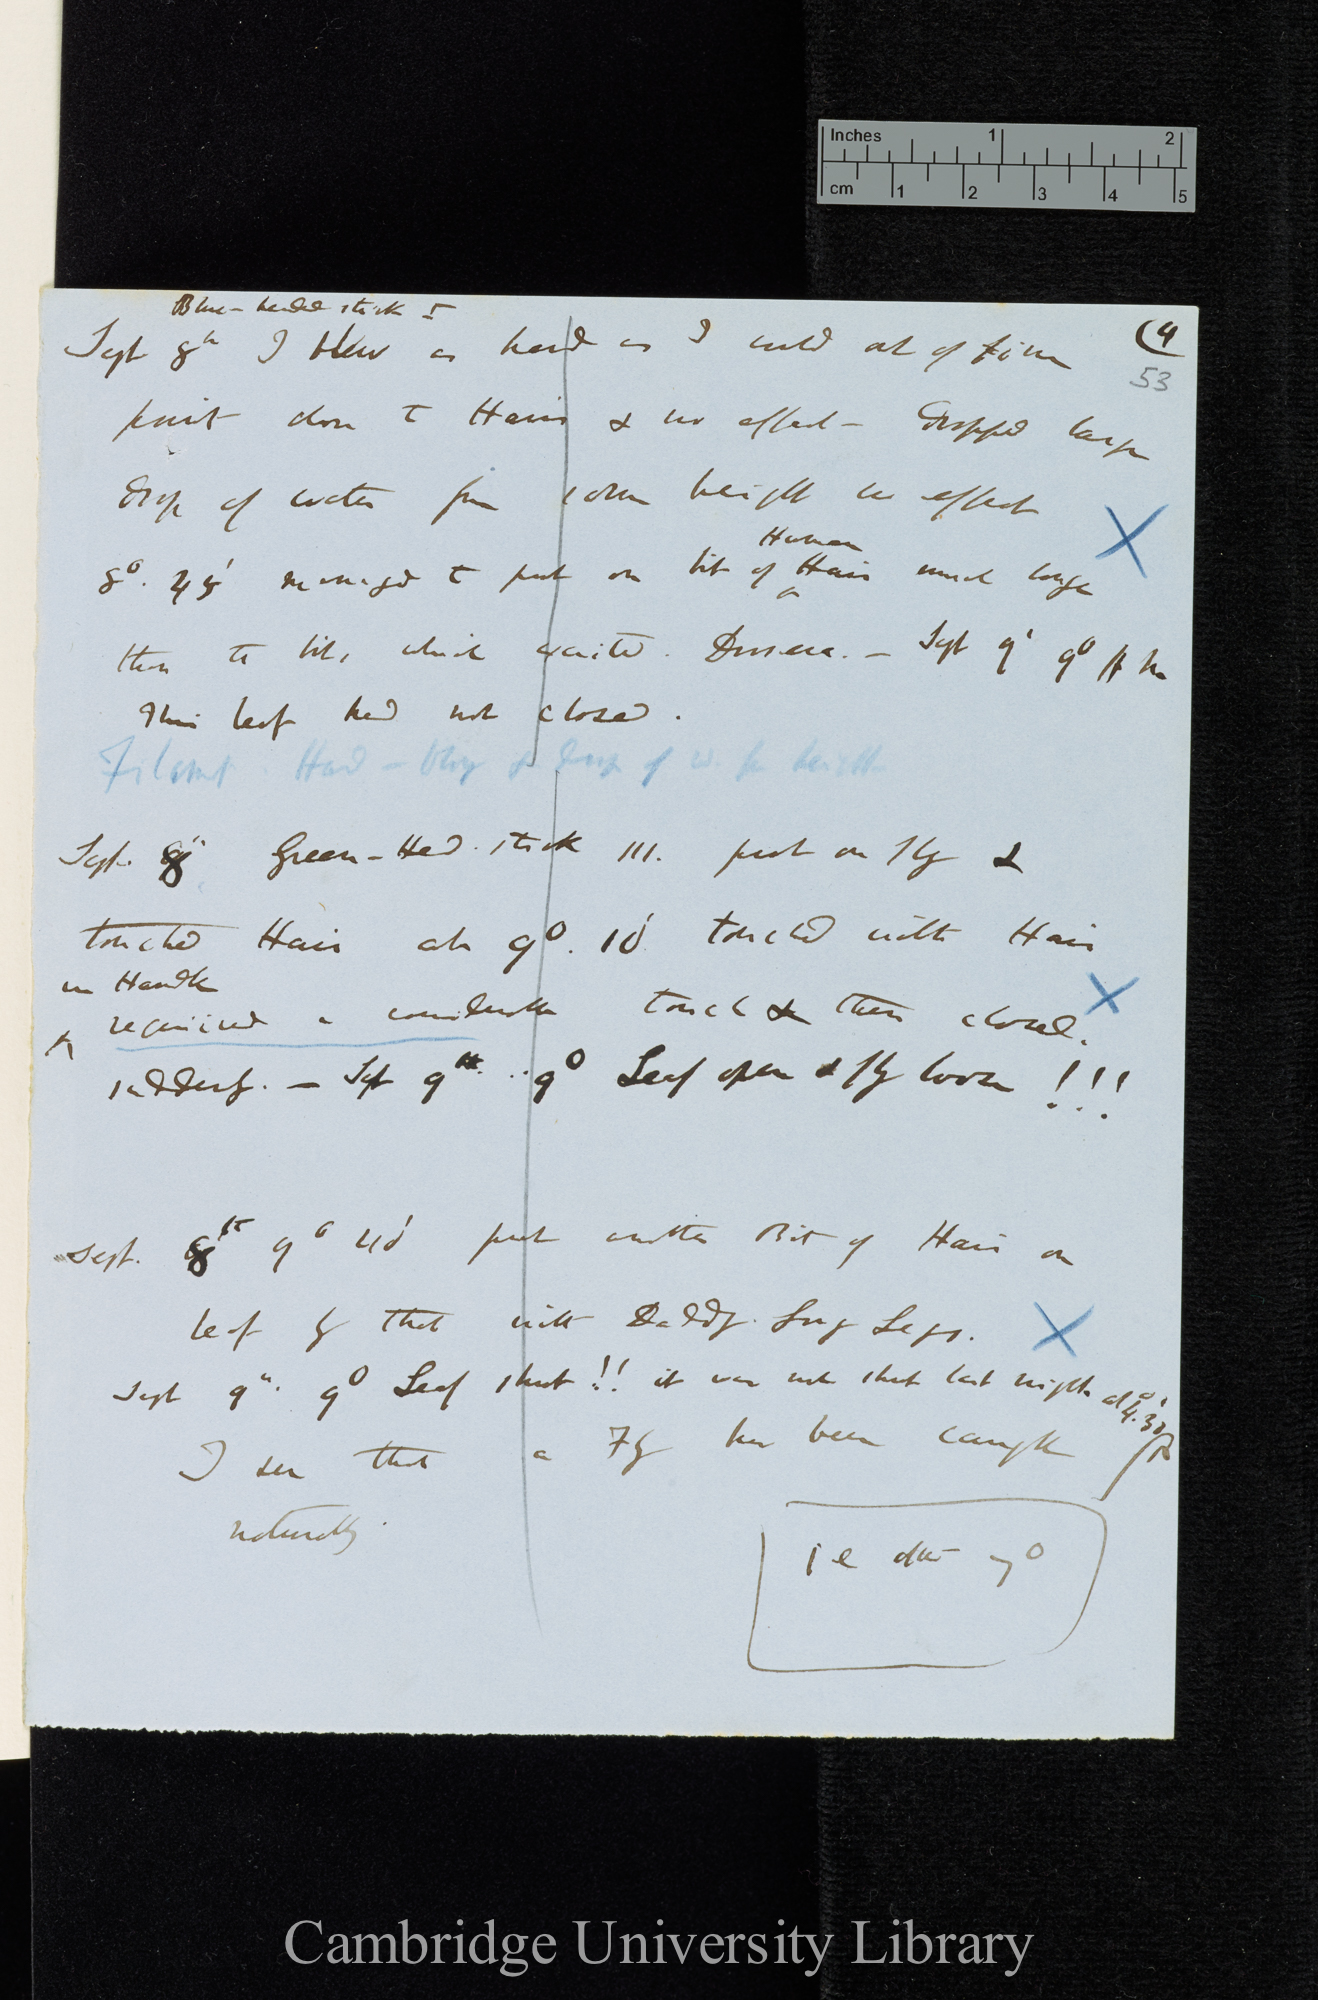 Inches 1 2
cm 1 2 3 4 5
Blue-headed stick I
(4
53
Sept 8th I blew as hard as I could out of fine
point close to Hairs & no effect – Dropped large
drop of water from some height no effect
Human
8°. 45' managed to put on bit of Hair much longer
than the bits which excited Drosera. – Sept 9' 9°
This leaf had not closed.
Filament Hard – blowing & drop of w. from height
Sept. 8" Green-Head stick III. put on fly &
touched Hair at 9°. 10' touched with Hair
in Handle
required a considerable touch & then closed.
suddenly. – Sept 9th. 9° Leaf open & fly loose !!!
Sept. 8th 9° 40' put another Bit of Hair on
leaf by that with Daddy Long Legs.
Sept 9". 9° Leaf shut!! it was not shut last night at 4°.30'
I see that a Fly has been caught
naturally.
i e after 9°
Cambridge University Library